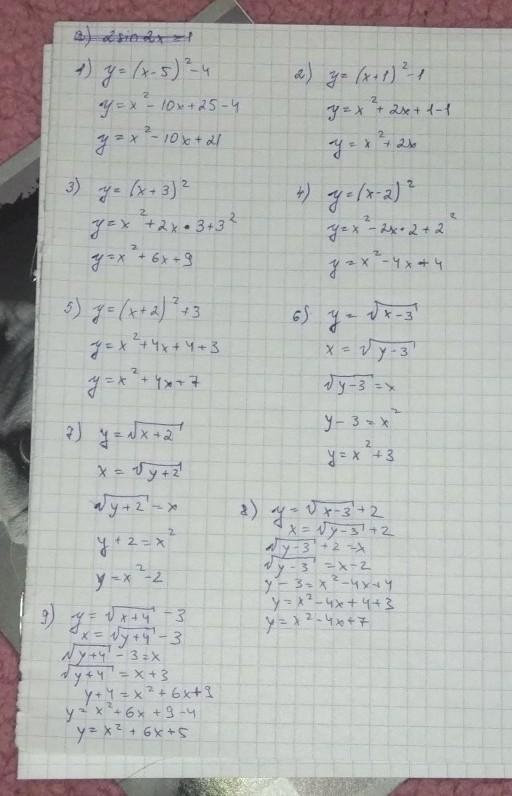 3) 2sin2x=1
1) y=(x-5)²-4
y=x²-10x+25-4
y=x²-10x+21
2) y=(x+1)²-1
y=x²+2x+1-1
y=x²+2x
3) y=(x+3)²
y=x²+2x·3+3²
y=x²+6x+9
4) y=(x-2)²
y=x²-2x·2+2²
y=x²-4x+4
5) y=(x+2)²+3
y=x²+4x+4+3
y=x²+4x+7
6) y=√(x-3)
x=√(y-3)
√(y-3)=x
y-3=x²
y=x²+3
7) y=√(x+2)
x=√(y+2)
√(y+2)=x
y+2=x²
y=x²-2
8) y=√(x-3)+2
x=√(y-3)+2
√(y-3)+2=x
√(y-3)=x-2
y-3=x²-4x+4
y=x²-4x+4+3
y=x²-4x+7
9) y=√(x+4)-3
x=√(y+4)-3
√(y+4)-3=x
√(y+4)=x+3
y+4=x²+6x+9
y=x²+6x+9-4
y=x²+6x+5